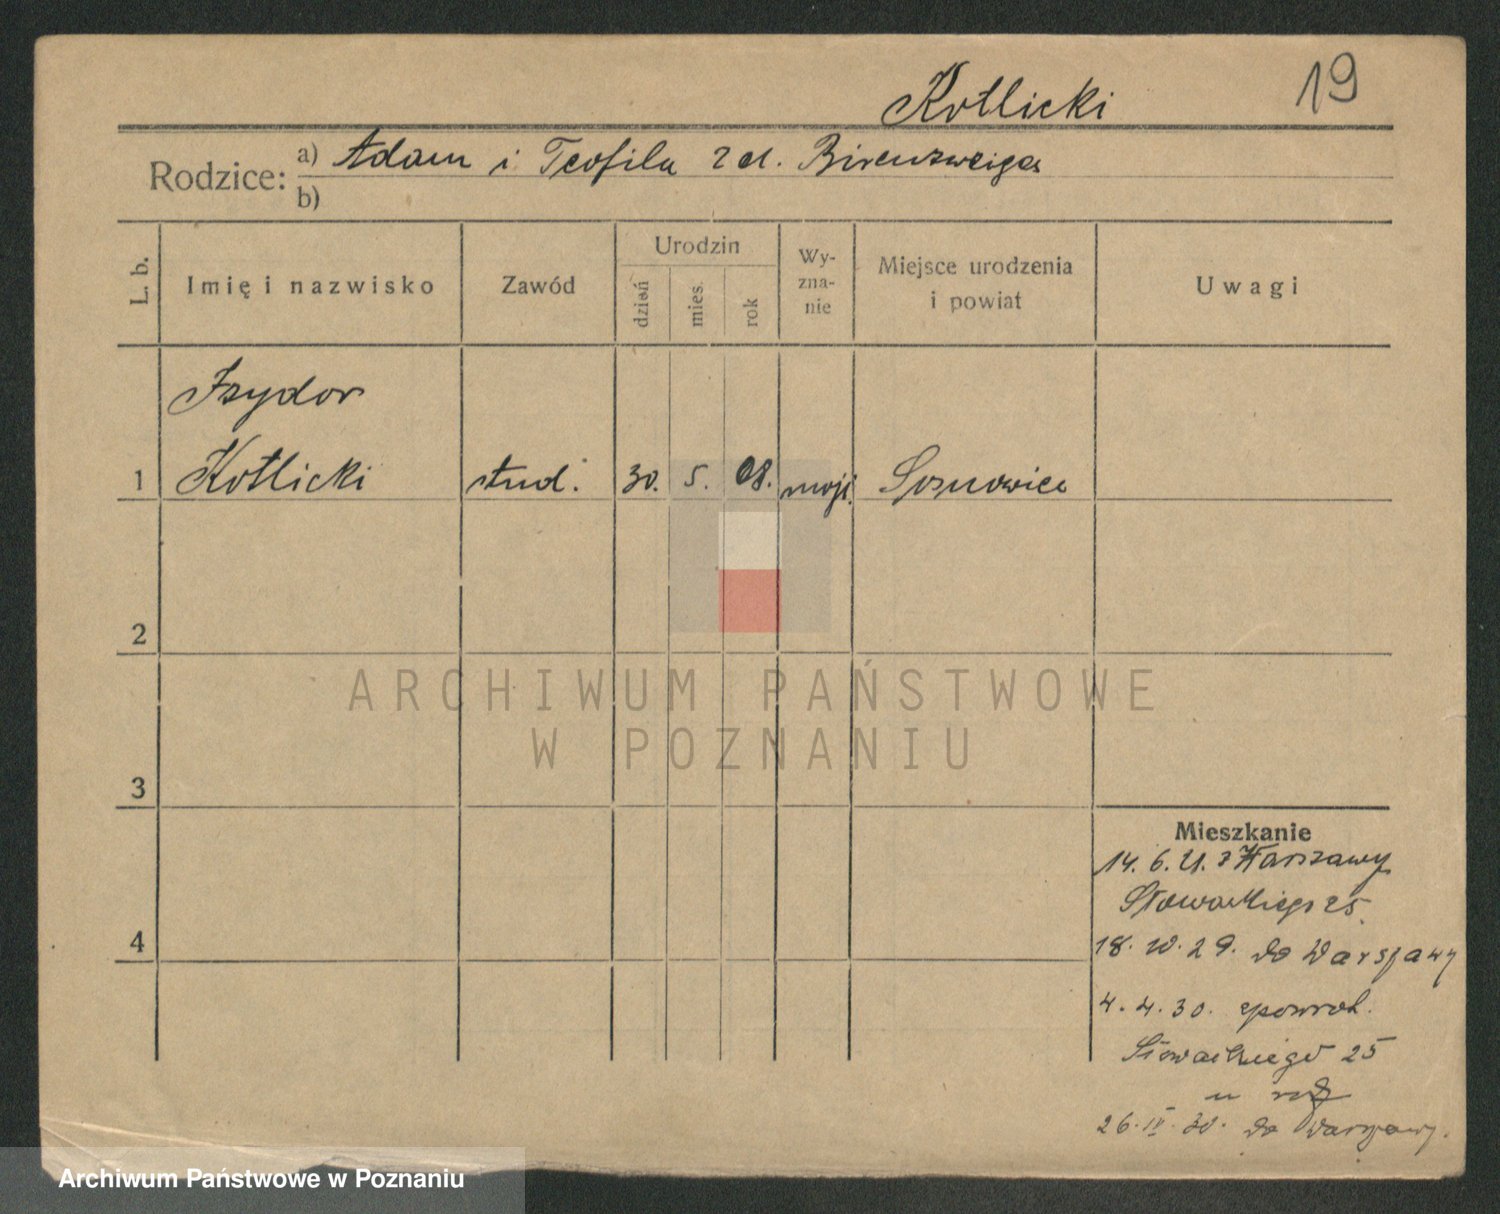 Kotlicki 19
Rodzice: a) Adam i Teofila z d. Birenzweiga
b)
L. b. Imię i nazwisko Zawód Urodzin dzień mies. rok Wy-zna-nie Miejsce urodzenia i powiat Uwagi
Izydor
1 Kotlicki stud. 30. 5. 08. mojż. Sosnowice
2
ARCHIWUM PAŃSTWOWE
W POZNANIU
3
Mieszkanie
14. 6. 21. z Warszawy
Słowackiego 25.
4
18. 10. 29. do Warszawy
4. 4. 30. spowrot.
Słowackiego 25
u
26. IV. 30. do Warszawy.
Archiwum Państwowe w Poznaniu